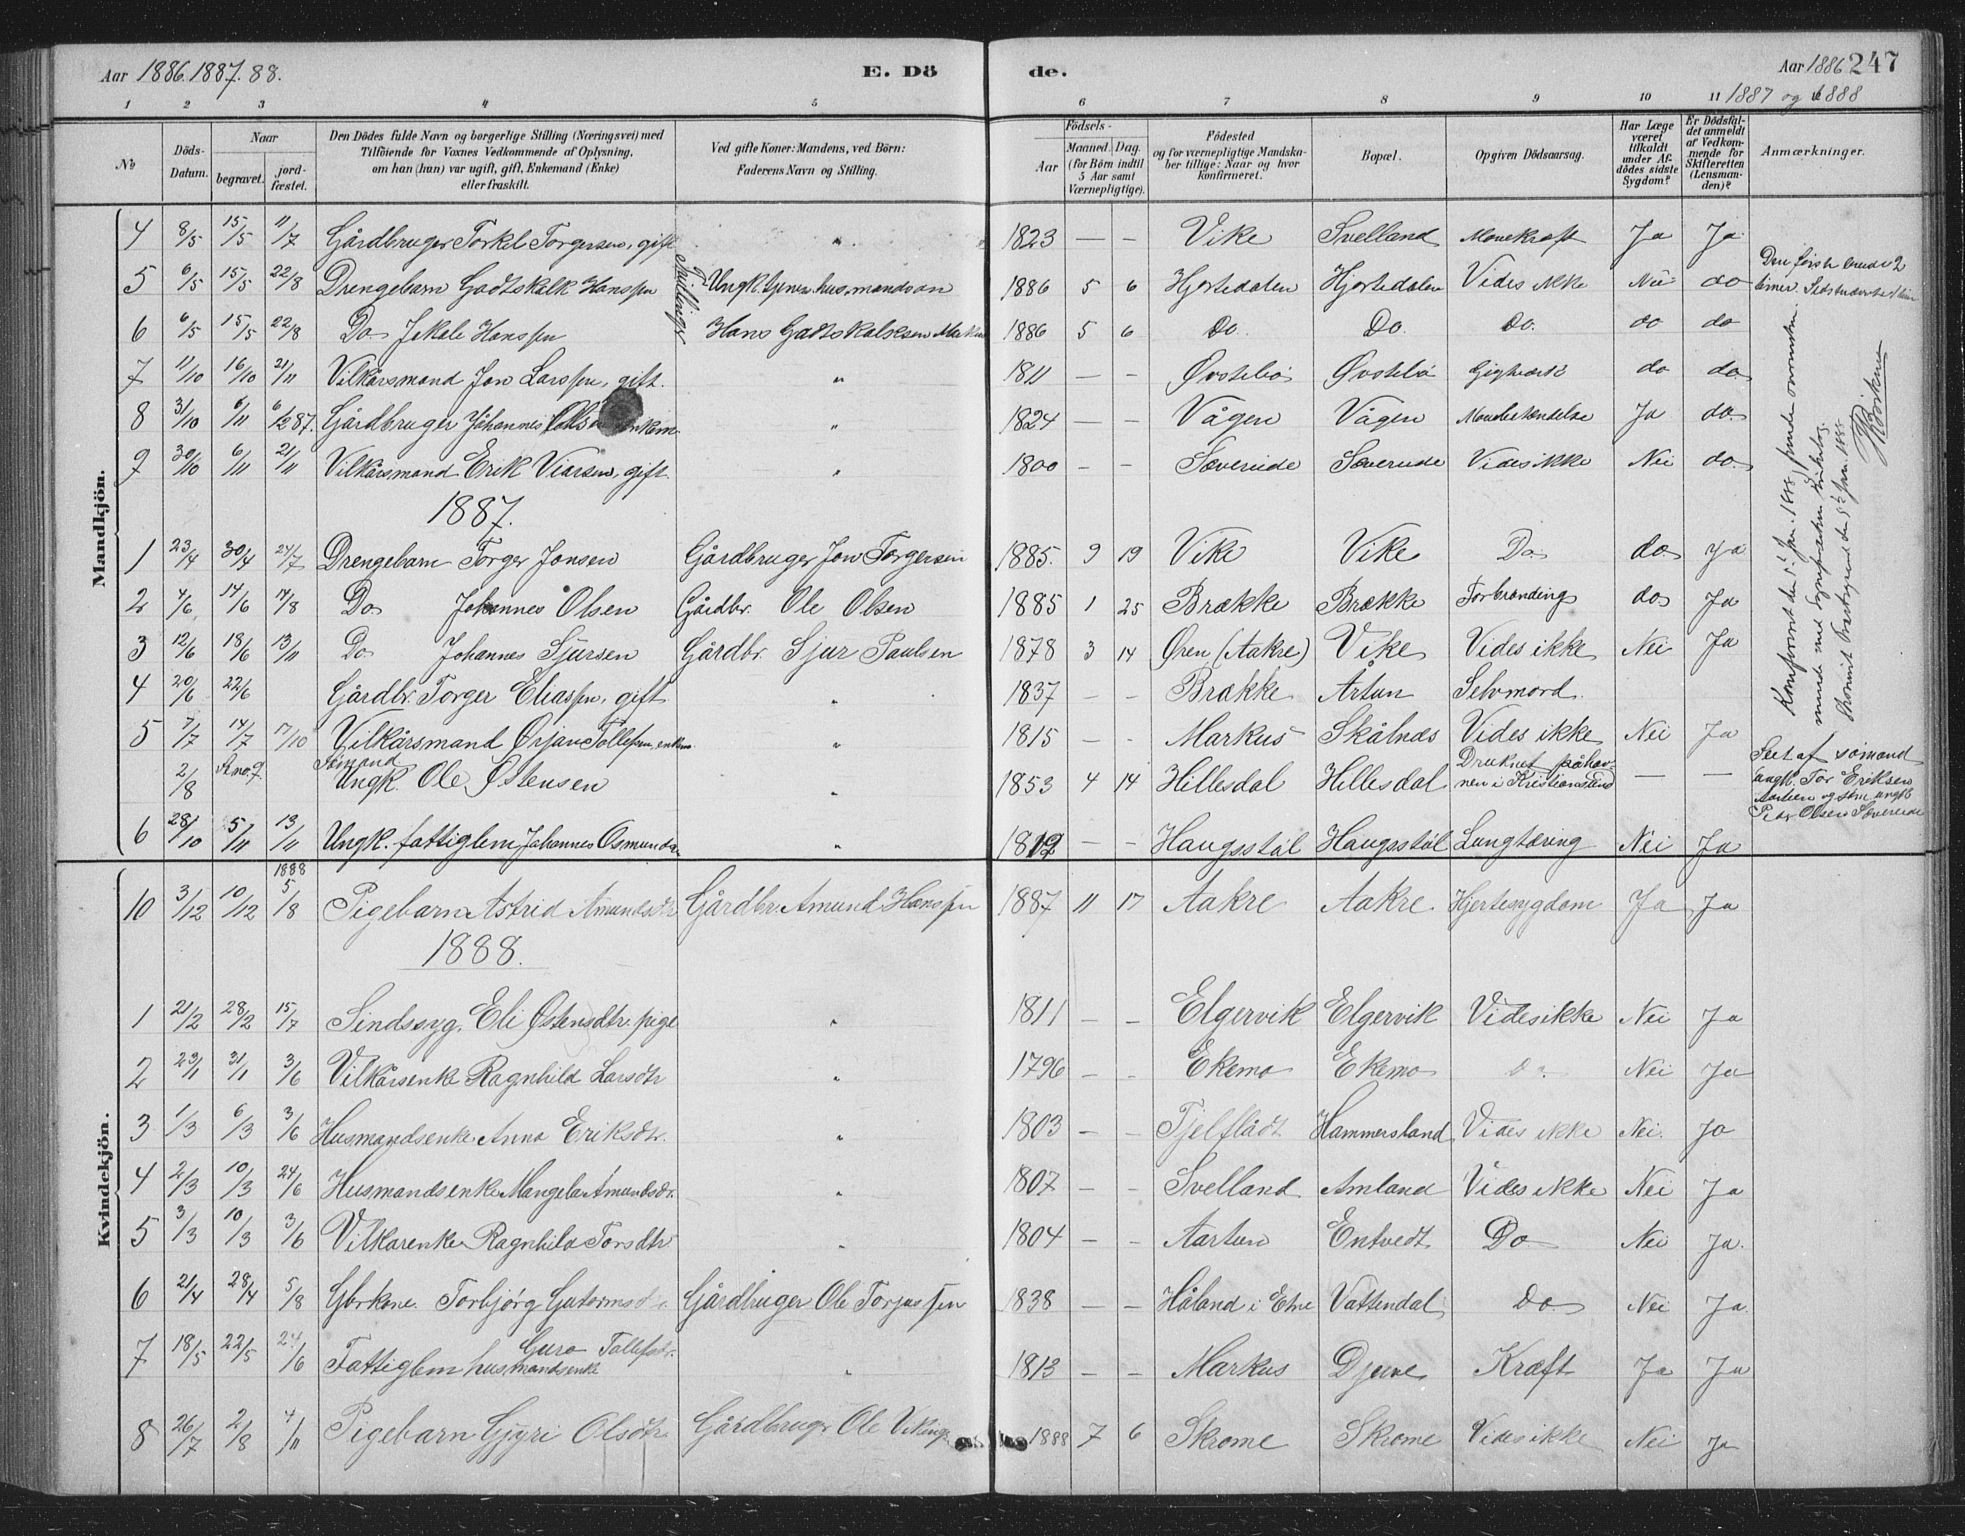 Aar 1886.1887.88.
E. Dö
de.
Aar 1886 247
1887 og 1888
1 2 3 4 5 6 7 8 9 10 11
No
Döds-Datum.
Naar
begravet.
jord-fæstet.
Den Dödes fulde Navn og borgerlige Stilling (Næringsvei) med
Tilföiende for Voxnes Vedkommende af Oplysning,
om han (hun) var ugift, gift, Enkemand (Enke)
eller fraskilt.
Ved gifte Koner: Mandens, ved Börn:
Faderens Navn og Stilling.
Födsels-
Aar
Maaned. Dag.
(for Börn indtil
5 Aar samt
Værnepligtige).
Födested
og for værnepligtige Mandska-
ber tillige: Naar og hvor
konfirmeret.
Bopæl.
Opgiven Dödsaarsag.
Har Læge
været
tilkaldt
under Af-
dödes sidste
Sygdom?
Er Dödsfal-
det anmeldt
af Vedkom-
mende for
Skifteretten
(Lensman-
den)?
Anmærkninger.
Mandkjön.
4 8/5 15/5 11/7 Gårdbruger Torkel Torgersen, gift " 1823 — — Vike Svelland Mavekræft Ja Ja
5 6/5 15/5 22/8 Drengebarn Godtskalk Hanssen Ungk. husmandsøn 1886 5 6 Hjortedalen Hjortedalen Vides ikke Nei do
6 6/5 15/5 22/8 Do Hanssen Hans Godtskalksen 1886 5 6 Do. Do. Do. do do
7 11/10 16/10 21/11 Vilkårsmand Jon Larssen, gift. " 1811 — — Øvstebö Øvstebö do do
8 31/10 6/11 6/12 87. Gårdbruger Johannes Olsen enkem. " 1824 — — Vågen Vågen Ja do.
9 30/10 6/11 21/11 Vilkårsmand Erik gift. " 1800 — — Sæverude Sæverude Vides ikke Nei do.
1887.
1 23/4 30/4 24/7 Drengebarn Torger Jonsen Gårdbruger Jon Torgersen 1885. 9 19 Vike Vike Do do Ja
2 4/6 14/6 14/8 Do Johannes Olsen Gårdbr. Ole Olsen 1885 1 25 Brække Brække Forbrænding do Ja
3 12/6 18/6 13/11 Do Johannes Sjursen Gårdbr. Sjur Paulsen 1878 3 14 Øren (Aakre) Vike Vides ikke Nei Ja
4 20/6 22/6 Gårdbr. Torger Eliassen, gift " 1837 — — Brække Årtun Selvmord.
5 7/7 14/7 17/10 Vilkårsmand Ørjan Tollefsen, enkm. " 1815 — — Markus Skålnæs Vides ikke Nei Ja
2/8 Sømand Ungk. Ole Østensen " 1853 4 14 Hillesdal Hillesdal Druknet på hav-
nen i Kristiansund — — Seet af sømand
ungk. Tor Eriksen
Aartun og söm. ungk.
Peder Olsen Sæverude
6 28/10 5/11 13/11 Ungk. fattiglem Johannes Osmundsen " 1812 — — Haugsstöl Haugsstöl Lungtæring Nei Ja
Konfereret den
mund med
H Börknes
Kvindekjön.
10 3/12 10/12 1888 5/8 Pigebarn Astrid Amundsdtr Gårdbr. Amund Hanssen 1887 11 17 Aakre Aakre Hjertesygdom Ja Ja
1888.
1 21/2 28/2 15/7 Sindssyg. Eli Østensdtr. pige " 1811 — — Elgervik Elgervik Vides ikke Nei Ja
2 23/1 31/1 3/6 Vilkårsenke Ragnhild Larsdtr " 1796 — — Ekemo Ekemo Do Nei Ja
3 1/3 6/3 3/6 Husmandsenke Anna Eriksdtr. " 1803 — — Tjelflådt Hammersland Vides ikke Nei. Ja
4 2/3 10/3 24/6 Husmandsenke Mangela Amundsdr. " 1807 — — Svelland Amland Vides ikke Nei Ja
5 3/3 10/3 3/6 Vilkårenke Ragnhild Torsdtr " 1804 — — Aartun Entvedt Do Nei Ja.
6 21/4 28/4 5/8 Gbrkone. Torbjörg Gutormsd Gårdbruger Ole Torjussen 1838 — — Håland i Etne Vattendal Do Nei Ja.
7 18/5 22/5 24/6 Guro Tollefsdr.
Fattiglem husmandsenke " 1813 — — Markus Djuve Kræft Ja Ja
8 26/7 2/8 4/11 Pigebarn Gjyri Olsdtr Gårdbruger Ole Viking 1888 7 6 Skrome Skrome Vides ikke Nei Ja